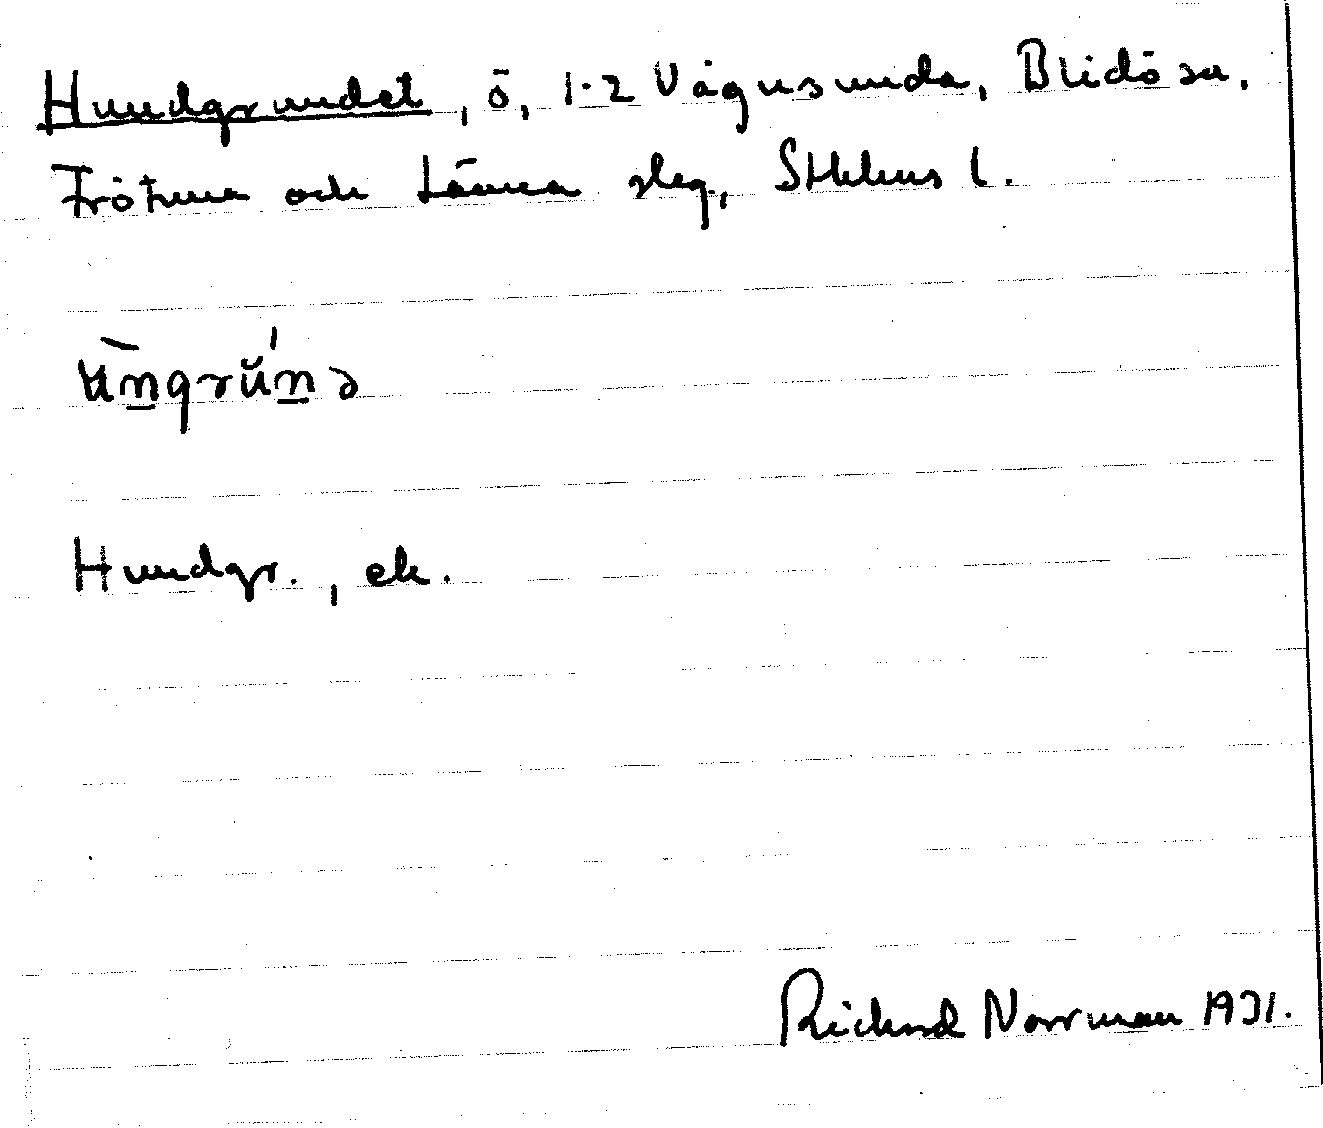 Hundgrundet, ö, 1-2 Vagnsunda, Blidö sn,
Frötuna och Länna slg, Sthlms l.
Hundgr., ek.
Richard Norrman 1931.